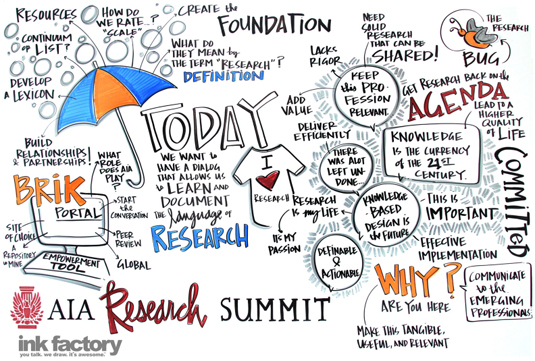 RESOURCES
HOW DO
WE RATE..?
"SCALE"
CONTINUUM
OF LIST?
DEVELOP
A LEXICON
CREATE the
FOUNDATION
WHAT DO
THEY MEAN by
THE TERM "RESEARCH"?
DEFINITION
BUILD
RELATIONSHIPS!
& PARTNERSHIPS!
WHAT
ROLE
DOES AIA
PLAY?
BRIK
PORTAL
SITE OF
CHOICE
A
REPOSITORY
to MINE
START
the
CONVERSATION
PEER
REVIEW
GLOBAL
EMPOWERMENT
TOOL
TODAY
WE WANT to
HAVE A DIALOG
THAT ALLOWS US
to LEARN AND
DOCUMENT
the language of
RESEARCH
I
RESEARCH
IT'S MY
PASSION
RESEARCH
is my LIFE
LACKS
RIGOR
ADD
VALUE
DELIVER
EFFICIENTLY
NEED
SOLID
RESEARCH
THAT CAN BE
SHARED!
KEEP
this PRO
FESSION
RELEVANT
THERE
WAS A LOT
LEFT UN-
DONE...
KNOWLEDGE
BASED
DESIGN IS
the FUTURE
DEFINABLE
&
ACTIONABLE
THE
RESEARCH
BUG
GET RESEARCH BACK on the
AGENDA
LEAD to A
HIGHER
QUALITY
of LIFE
KNOWLEDGE
IS THE CURRENCY
OF THE 21ST
CENTURY.
COMMITTED
THIS IS
IMPORTANT
EFFECTIVE
IMPLEMENTATION
WHY?
ARE YOU HERE
COMMUNICATE
to the
EMERGING
PROFESSIONALS
MAKE THIS TANGIBLE,
USEFUL, AND RELEVANT
AIA Research SUMMIT
ink factory
you talk. we draw. it's awesome.